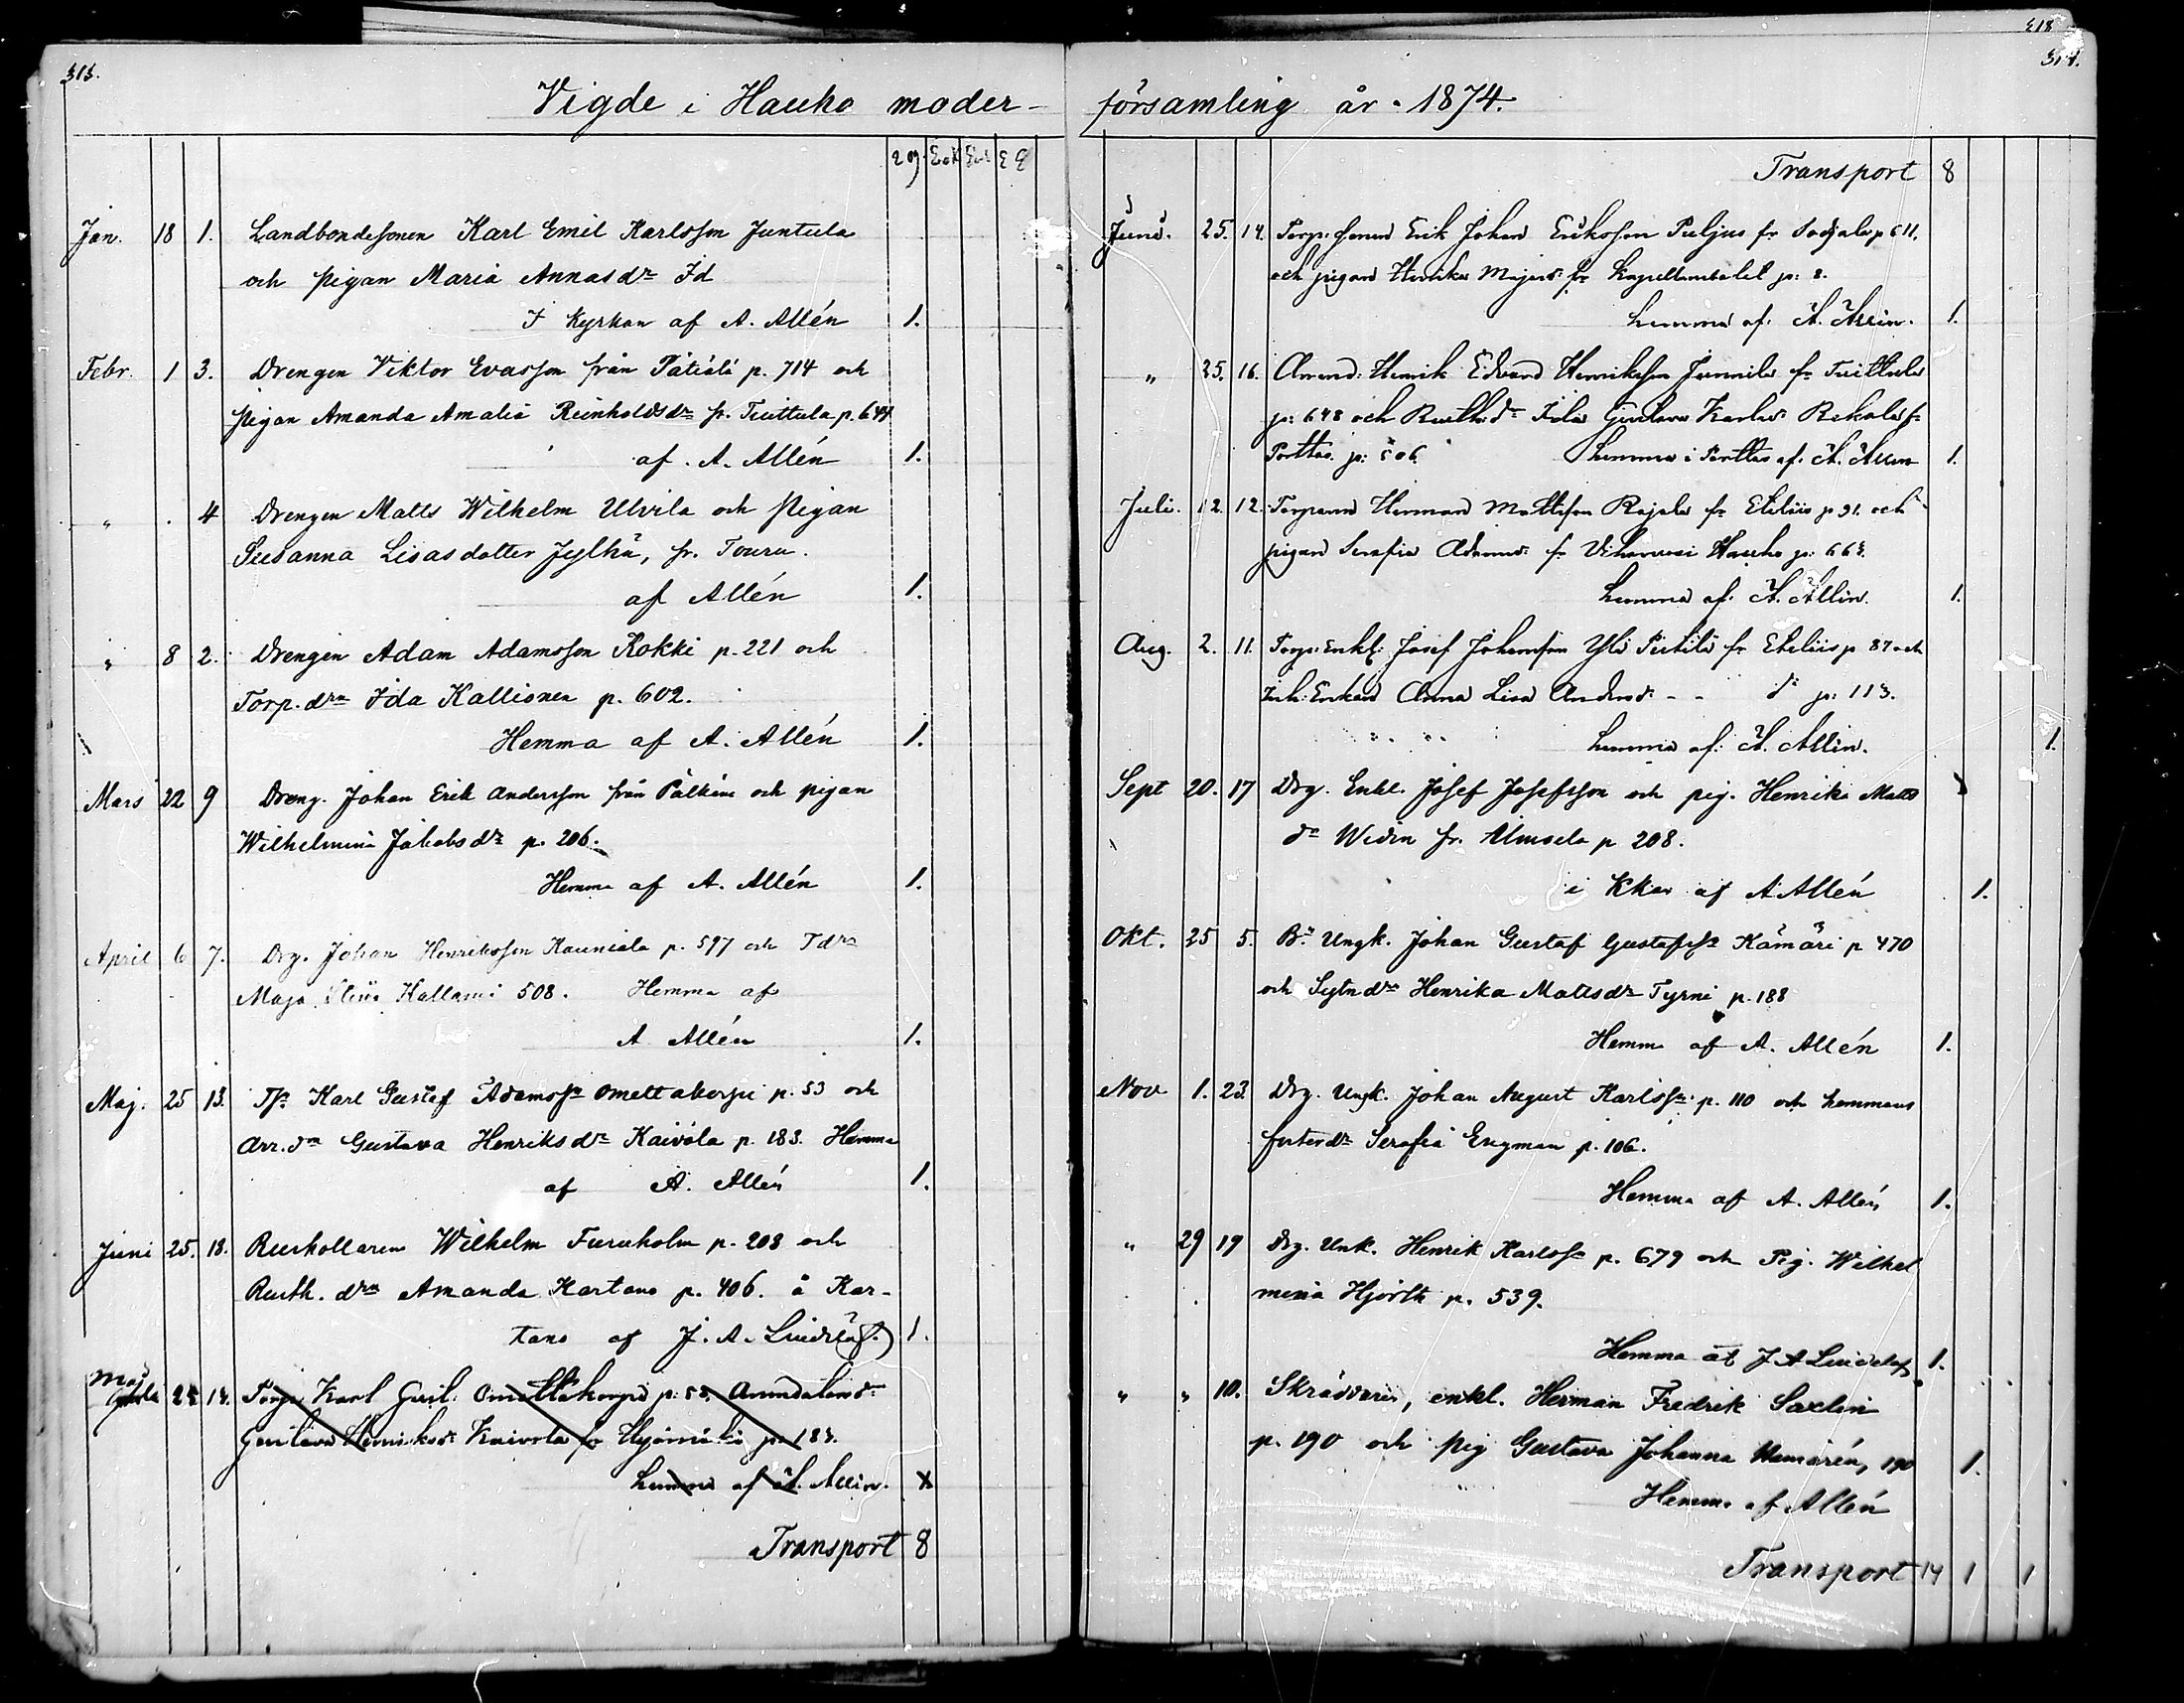 313.
Vigde i Hauho moder-
Jan. 18 1. Landbondesonen Karl Emil Karlsson Juntula
och pigan Maria Annasdr Id
I Kyrkan af A. Allén 1.
Febr. 1 3. Drengen Viktor Evasson från Pätiälä p. 714 och
pigan Amanda Amalia Reinholdsdr fr. Tuittula p. 644
af A. Allén 1.
" 4 Drengen Matts Wilhelm Ulvila och pigan
Susanna Lisasdotter Jylhä, fr. Touru.
af Allén 1.
" 8 2. Drengen Adam Adamsson Kokki p. 221 och
Torp. drn Ida Kallionen p. 602.
Hemma af A. Allén 1.
Mars 22 9 Dreng. Johan Erik Andersson från Pälkäne och pigan
Wilhelmina Jakobsdr p. 206.
Hemma af A. Allén 1.
April 6 7. Drg. Johan Henriksson Kauniala p. 597 och Tdrn
Maja Stina Kallami 508. Hemma af
A Allén 1.
Maj. 25 13. Karl Gustaf Adamss Omettakorpi p. 53 och
Arr. drn Gustava Henriksdr Kaivola p. 183. Hemma
af A. Allén 1.
Juni 25. 18. Rusthollaren Wilhelm Furuholm p. 208 och
Rusth. drn Amanda Kartano p. 406. å Kar-
tano af J. A. Lindelöf. 1.
Maj 24 14. Karl Gust. Omettakorpi p: 53.
Gustava Henriksdr Kaivola fr p: 183.
hemma af A. Allén.
Transport 8
församling år 1874.
Transport 8
Juni. 25. 14. Torp: sonen Erik Johan Eriksson Puljus fr p 611.
och pigan Henrika fr Kapellansbolet p: 8.
hemma af A. Allén. 1.
" 25. 16. Arrend: Henrik Edvard Henriksson fr Tuittula
p: 648 och Rusth: dr Ida Gustava fr
Porttas p: 506. hemma i Porttas af A. Allén 1.
Juli. 12. 12. Torparen Herman Mattsson Rajala fr Eteläis p 91. och
pigan Serafia fr Hauho p: 663.
hemma af A. Allén. 1.
Aug. 2. 11. Torp: Enkl: Josef Johansson Yli fr Eteläis p 87 och
Inh: Enkan Anna Lisa Andersdr - - dr p: 113.
hemma af A. Allén. 1.
Sept 20. 17 Drg. Enkl. Josef Josefsson och pig. Henrika Matts
dr Widen fr. p 208.
i Kkan af A Allén 1.
Okt. 25 5. Ungk. Johan Gustaf Gustafss Kämäri p 470
och Sytndrn Henrika Mattsdr Tyrni p. 188
Hemm af A. Allén 1.
Nov 1. 23. Drg. Ungk. Johan August Karlss p. 110 och hemmans
Serafia Engman p. 106.
Hemma af A. Allén 1.
" 29 19 Drg. Unk. Henrik Karlss p. 679 och Pig. Wilhel
mina Hjorth p. 539.
Hemma af J A Lindelöf 1.
" " 10. Skräddaren, enkl. Herman Fredrik Saxlin
p. 190 och pig Gustava Johanna 190 1.
Hemma af Allén
Transport 14 1 1